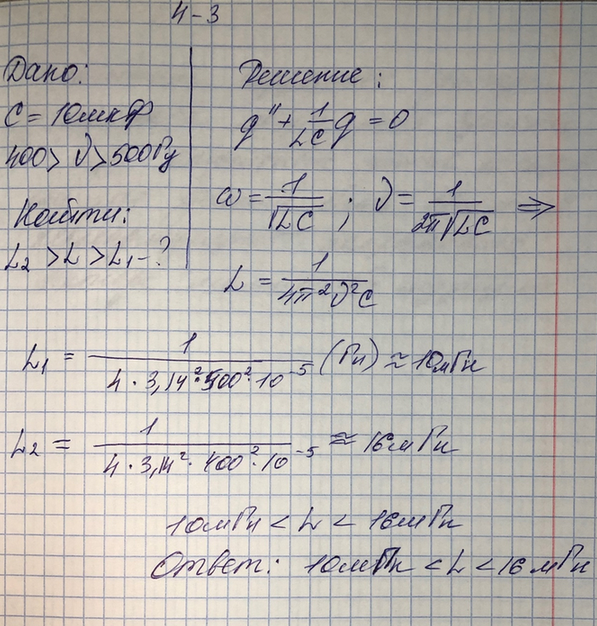 4-3
Дано:
C = 10мкФ
400 > ν > 500Гц
Найти:
L₂ > L > L₁ - ?
Решение:
q'' + 1/LC q = 0
ω = 1/√LC ; ν = 1/2π√LC ⇒
L = 1/4π²ν²C
L₁ = 1/4 · 3,14² · 500² · 10⁻⁵ (Гн) ≈ 10мГн
L₂ = 1/4 · 3,14² · 400² · 10⁻⁵ ≈ 16мГн
10мГн < L < 16мГн
Ответ: 10мГн < L < 16мГн